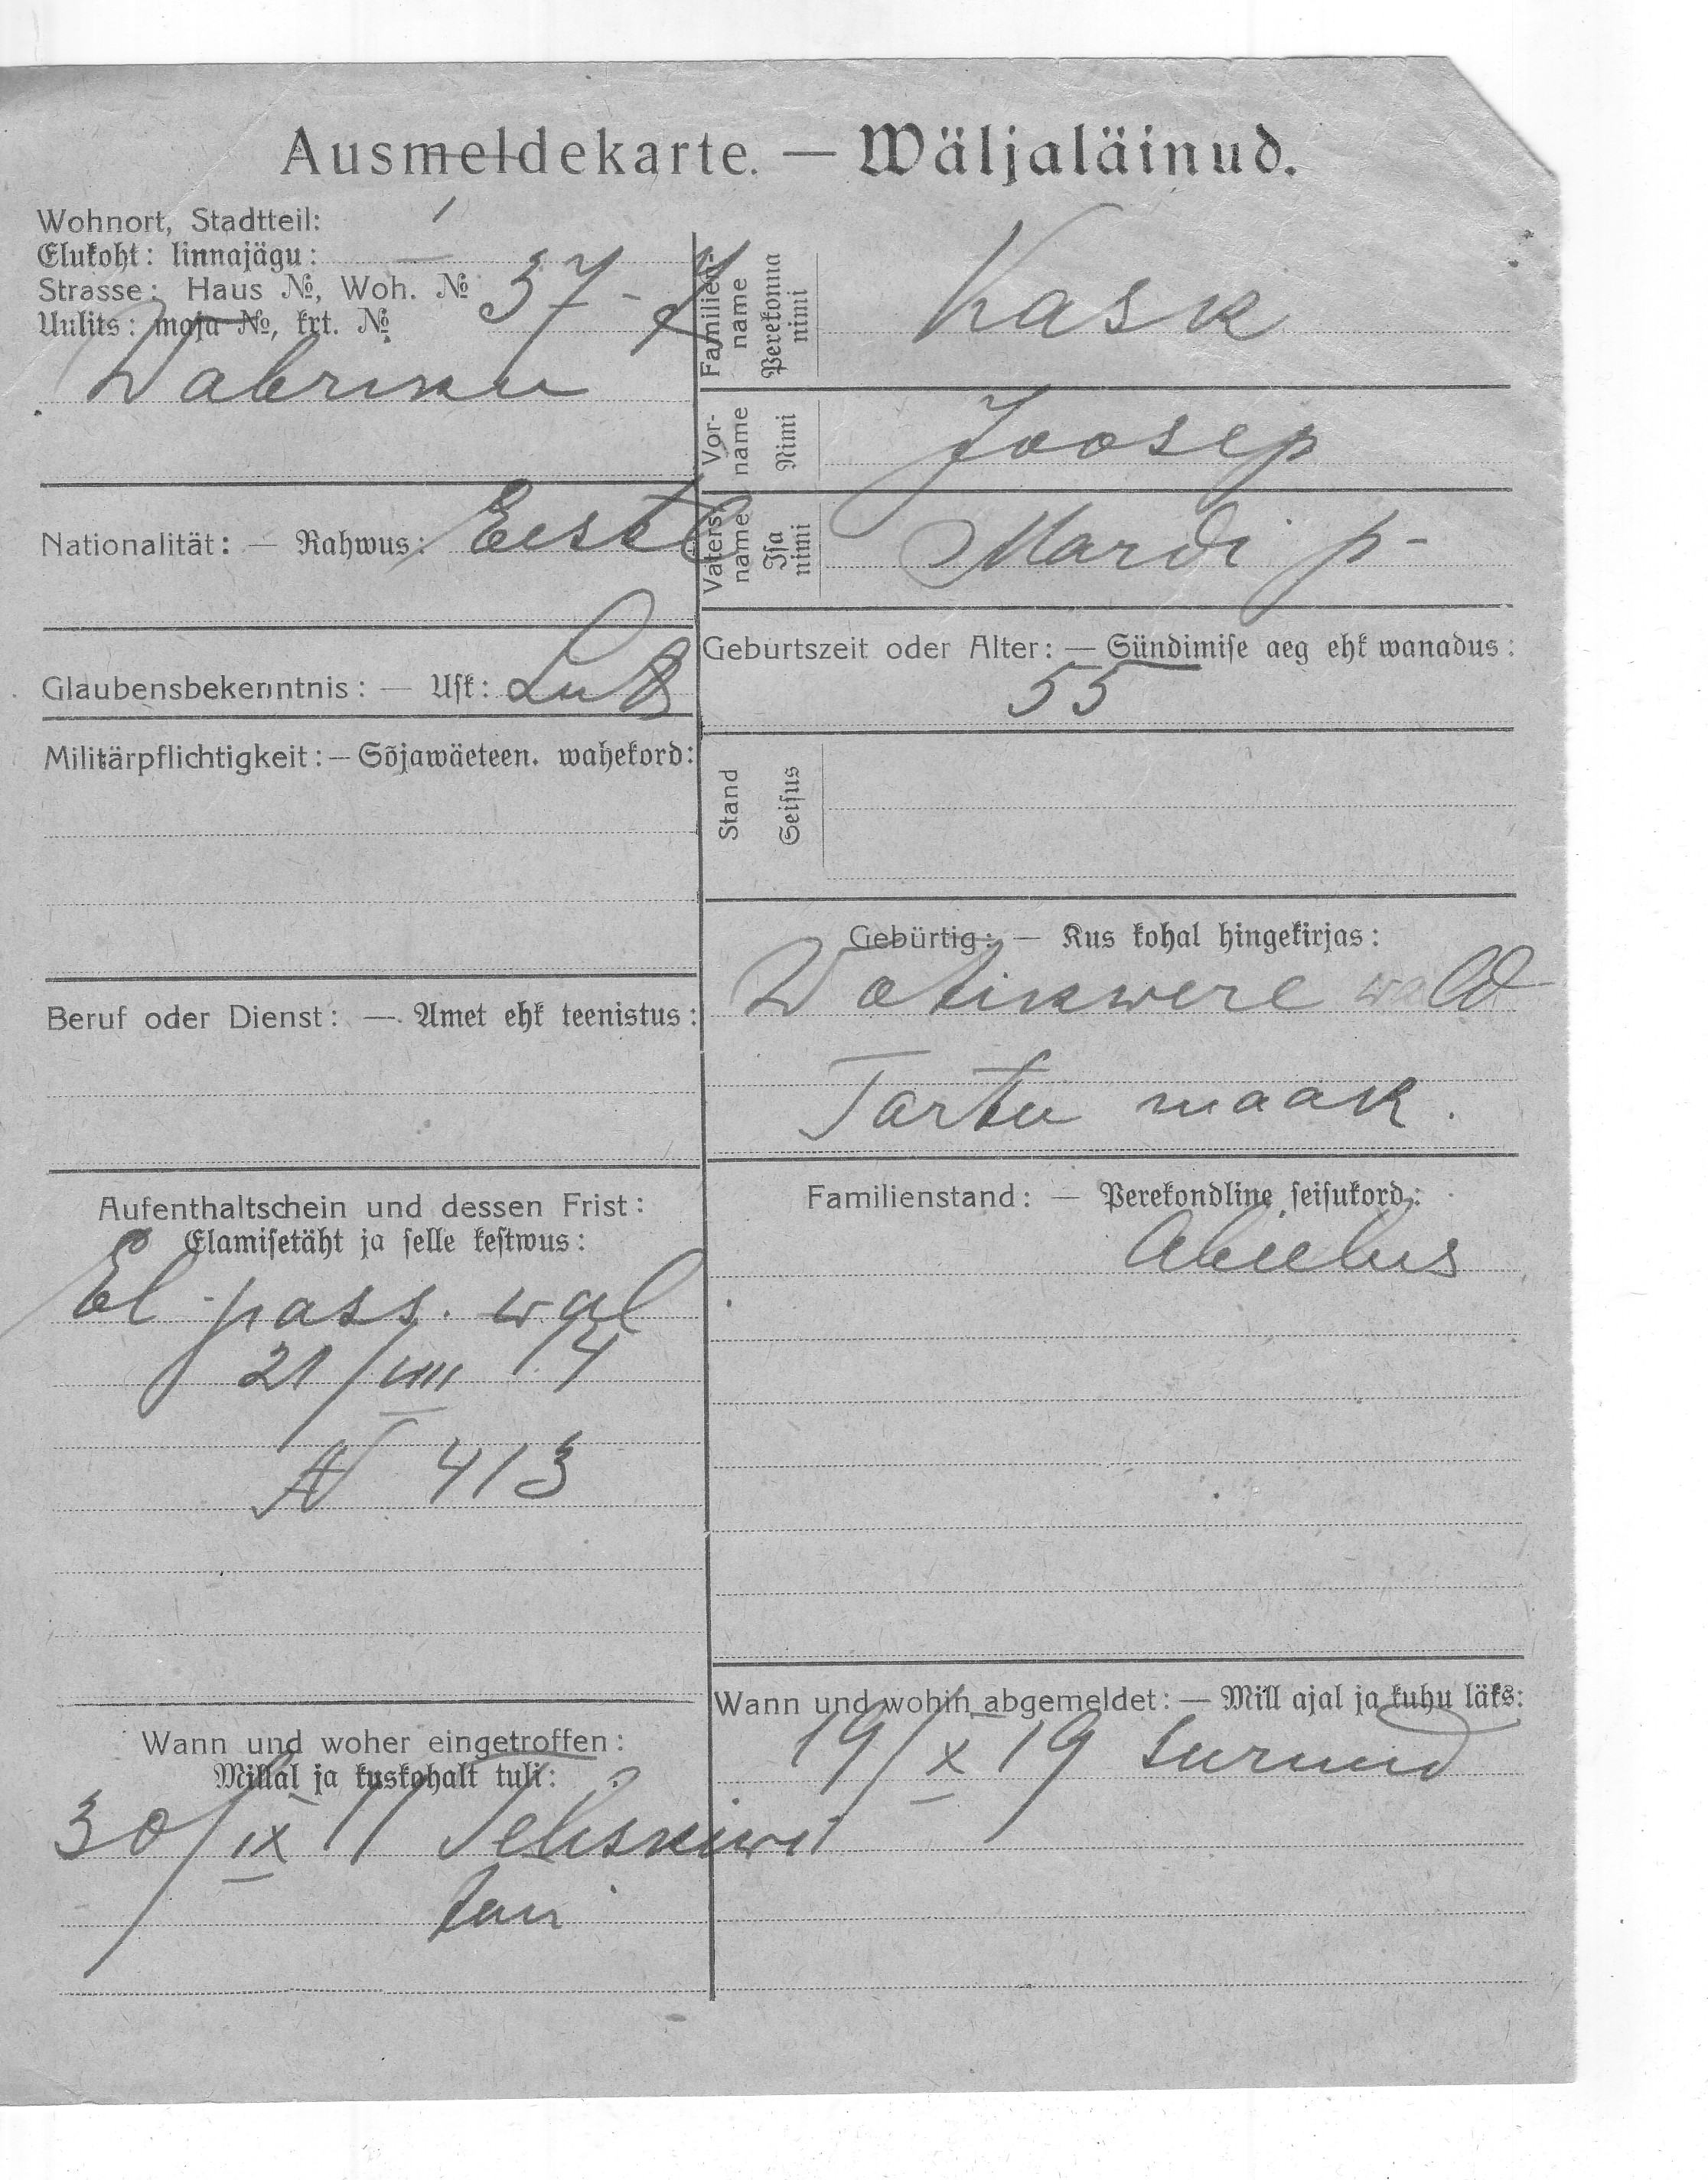 Ausmeldekarte. — Wäljaläinud.
Wohnort, Stadtteil: 1
Elukoht: linnajägu:
Strasse: Haus №, Woh. № 37-
Uulits: maja №, krt. №
Wabriku
Familien-name
Perekonna nimi
Kask
Vor-name
Nimi
Joosep
Vaters-name
Isa nimi
Mardi p-
Nationalität: — Rahwus: Eesti
Glaubensbekenntnis: — Usk: Lut
Militärpflichtigkeit: — Sõjawäeteen. wahekord:
Beruf oder Dienst: — Amet ehk teenistus:
Aufenthaltschein und dessen Frist:
Elamisetäht ja selle kestwus:
El pass. wal
21/VIII 14
N 413
Wann und woher eingetroffen:
Millal ja kuskohalt tuli:
30/IX 11
Geburtszeit oder Alter: — Sündimise aeg ehk wanadus:
55
Stand
Seisus
Gebürtig: — Kus kohal hingekirjas:
Wotikwere wald
Tartu maak.
Familienstand: — Perekondline seisukord:
Abielus
Wann und wohin abgemeldet: — Mill ajal ja kuhu läks:
19/X 19 Surnud